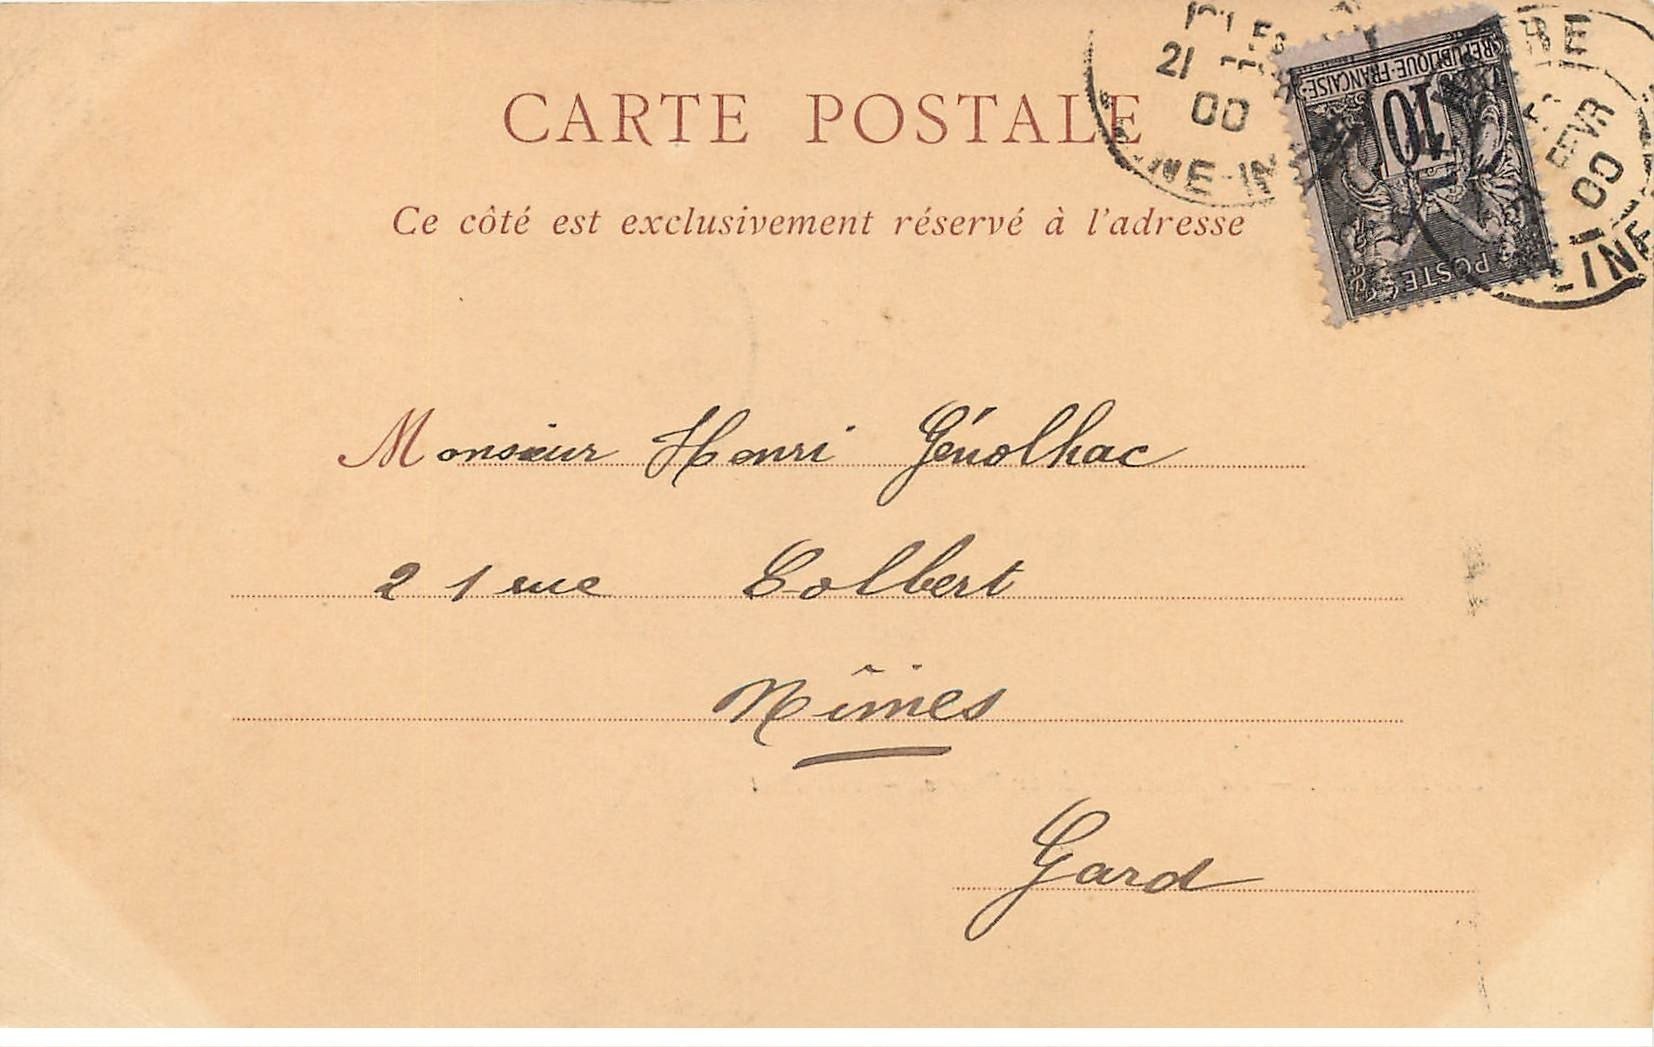 CARTE POSTALE
Ce côté est exclusivement réservé à l'adresse
21
00
RÉPUBLIQUE·FRANÇAISE
10
POSTE
FEVR
00
Monsieur Henri Génolhac
21 rue Colbert
Nîmes
Gard